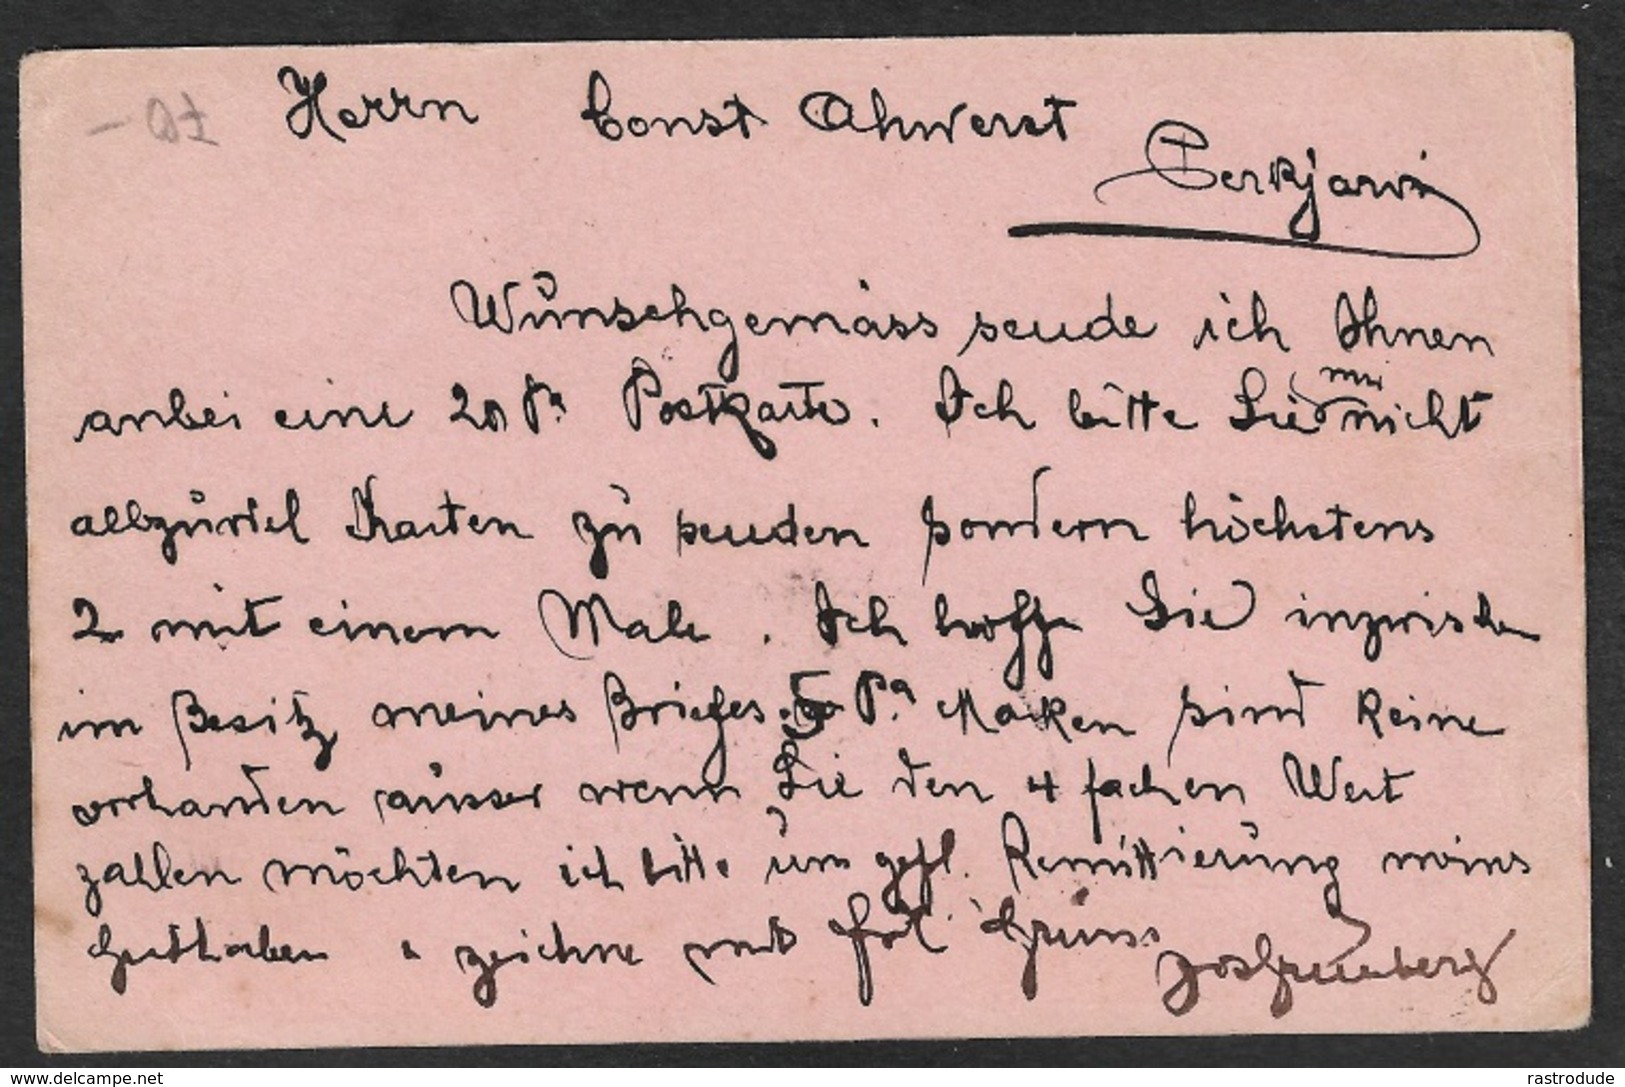 Herrn Const Ahwerst
Perkjarvi
Wünschgemäss sende ich Ihnen
anbei eine 20 Pa Postkarte. Ich bitte Sie mir nicht
allzuviel Karten zu senden sondern höchstens
2 mit einem Male. Ich hoffe Sie inzwischen
im Besitz meines Briefes. 5 Pa. Marken sind keine
vorhanden äusser wenn Sie den 4 fachen Wert
zahlen möchten ich bitte um gefl. Remittierung meins
Guthaben u zeichne mit frdl Grüss
Jos Grünberg
www.delcampe.net
rastrodude